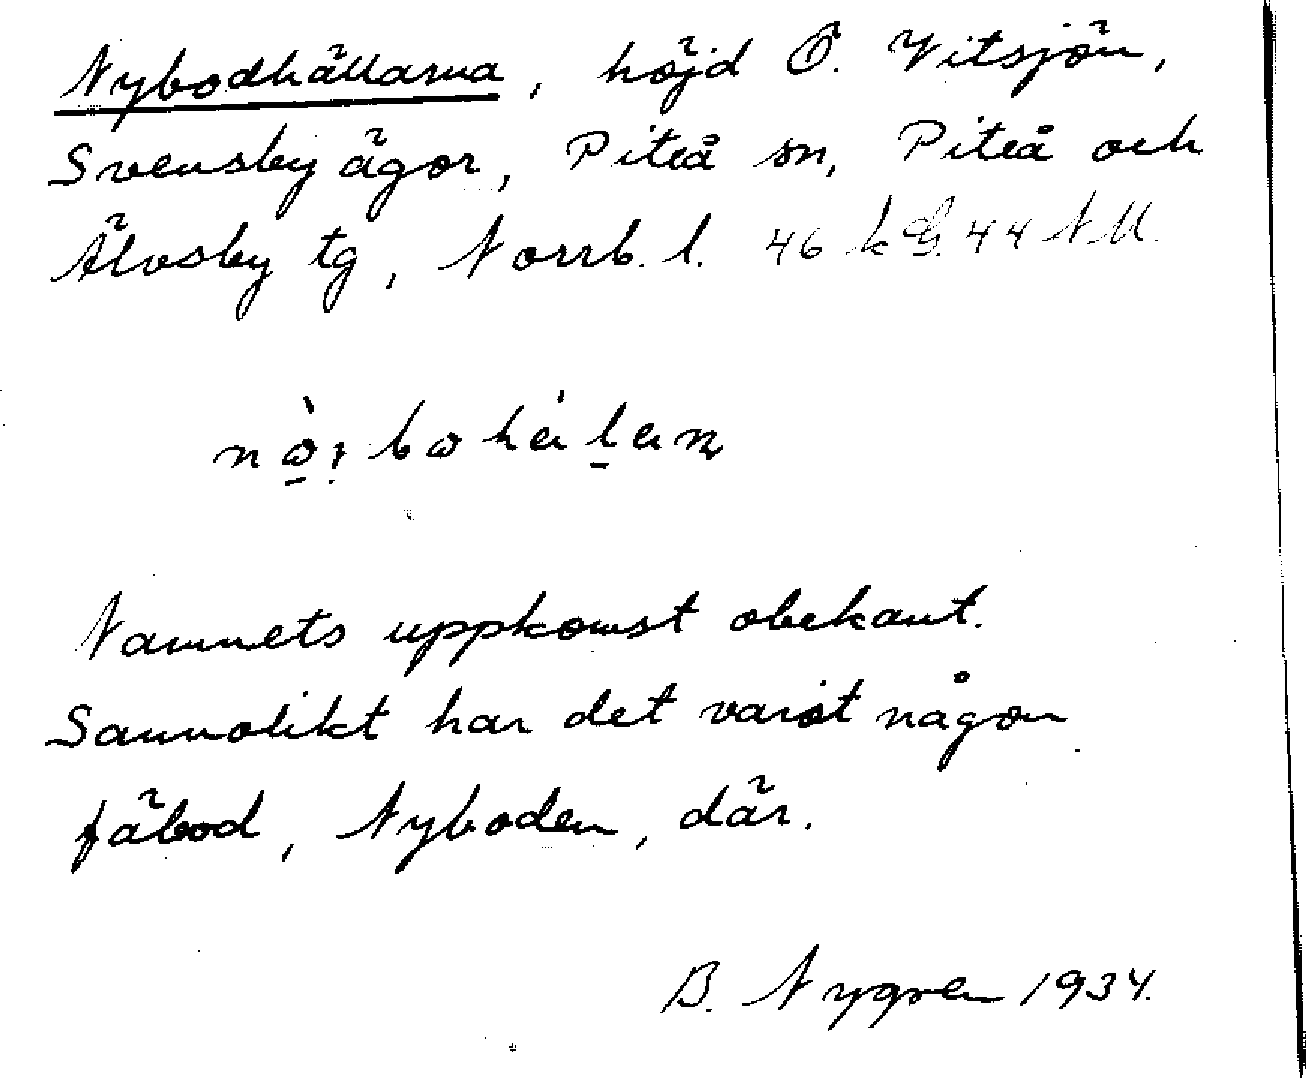 Nybodhällarna, höjd Ö. Vitsjön,
Svensby ägor, Piteå sn, Piteå och
Älvsby tg, Norrb. l. 46 k G. 44 NU.
Namnets uppkomst obekant.
Sannolikt har det varit någon
fäbod, Nyboden, där.
B. Nygren 1934.